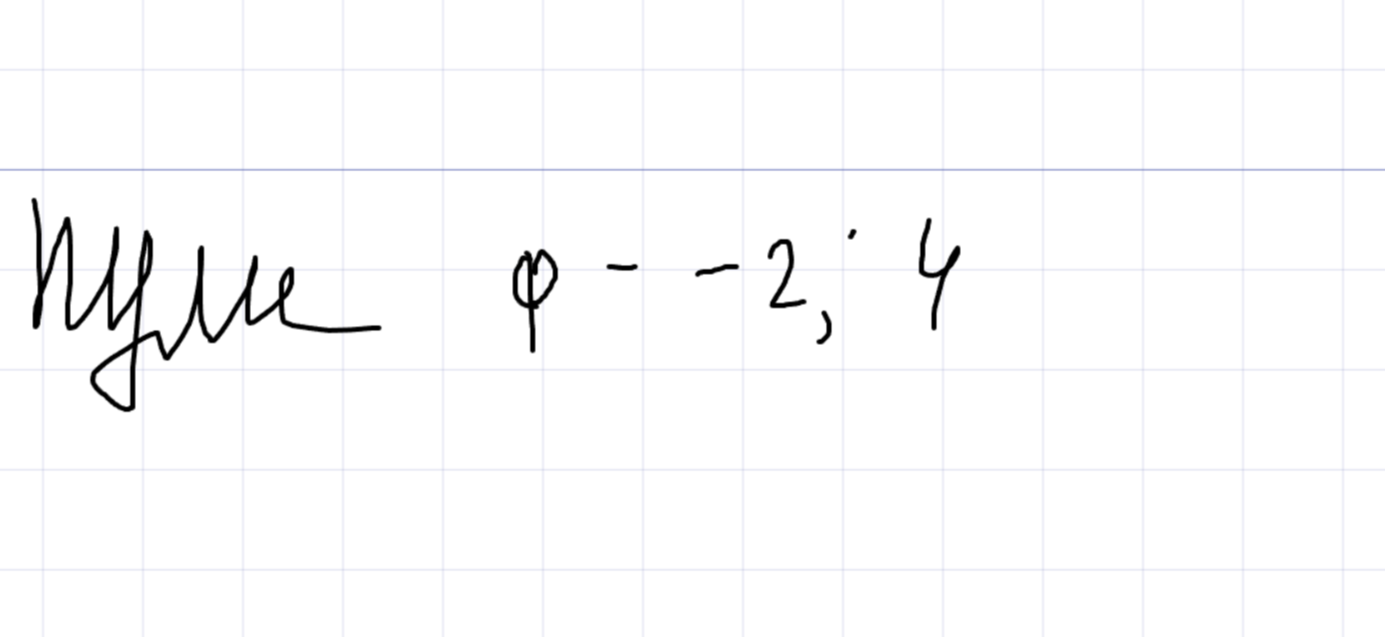 Нули φ - -2; 4